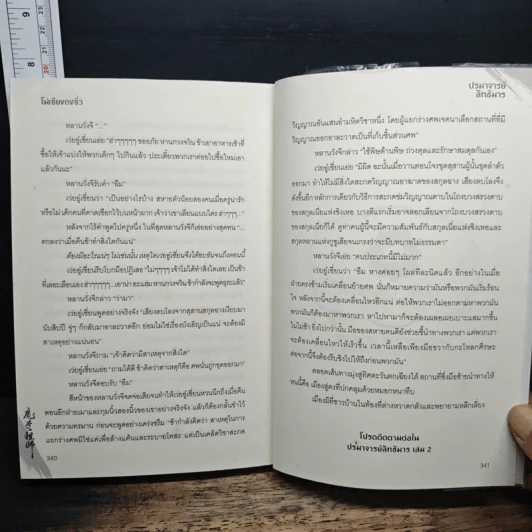 โม่เซียงถงซิ่ว
หลานวั่งจี "..."
เว่ยอู๋เซี่ยนเอ่ย "ฮ่าๆๆๆๆๆ ขออภัย หานกวงจวิน ข้าเอาอาหารเช้าที่
ซื้อให้เจ้าแบ่งให้พวกเด็กๆ ไปกินแล้ว ประเดี๋ยวพวกเราค่อยไปซื้อใหม่เอา
แล้วกันนะ"
หลานวั่งจีรับคำ "อืม"
เว่ยอู๋เซี่ยนว่า "เป็นอย่างไรบ้าง สหายตัวน้อยสองคนเมื่อครู่น่ารัก
หรือไม่ เด็กคนที่คาดเชือกไว้บนหน้าผาก เจ้าว่าเขาเลียนแบบใคร ฮ่าๆๆๆ..."
หลังจากไร้คำพูดไปครู่หนึ่ง ในที่สุดหลานวั่งจีก็เอ่ยอย่างสุดทน "...
ตกลงว่าเมื่อคืนข้าทำสิ่งใดกันแน่"
ต้องมีอะไรแน่ๆ ไม่เช่นนั้น เหตุใดเว่ยอู๋เซี่ยนจึงได้ขบขันจนถึงตอนนี้
เว่ยอู๋เซี่ยนรีบโบกมือปฏิเสธ "ไม่ๆๆๆๆ เจ้าไม่ได้ทำสิ่งใดเลย เป็นข้า
ที่เลอะเลือนเอง ฮ่าๆๆๆๆๆๆ ...เอาน่า อะแฮ่ม หานกวงจวิน ข้ากำลังจะพูดธุระแล้ว"
หลานวั่งจีกล่าว "ว่ามา"
เว่ยอู๋เซี่ยนพูดอย่างจริงจัง "เสียงตบโลงจากสุสานสกุลฉางเงียบมา
นับสิบปี จู่ๆ ก็กลับมาอาละวาดอีก ย่อมไม่ใช่เรื่องบังเอิญเป็นแน่ จะต้องมี
สาเหตุอย่างแน่นอน"
หลานวั่งจีถาม "เจ้าคิดว่ามีสาเหตุจากสิ่งใด"
เว่ยอู๋เซี่ยนเอ่ย "ถามได้ดี ข้าคิดว่าสาเหตุก็คือ ศพนั่นถูกขุดออกมา"
หลานวั่งจีตอบรับ "อืม"
สีหน้าของหลานวั่งจีจดจ่อเสียจนทำให้เว่ยอู๋เซี่ยนหวนนึกถึงเมื่อคืน
ตอนอีกฝ่ายเมาและกุมนิ้วสองนิ้วของเขาอย่างจริงจัง แล้วก็ต้องกลั้นขำไว้
ด้วยความทรมาน ก่อนจะพูดอย่างเคร่งขรึม "ข้ากำลังคิดว่า สาเหตุในการ
แยกร่างศพมิใช่แค่เพื่อล้างแค้นและระบายโทสะ แต่เป็นเคล็ดวิชาสะกด
340
ปรมาจารย์
ลัทธิมาร
วิญญาณอันแสนอำมหิตวิชาหนึ่ง โดยผู้แยกร่างศพเจตนาเลือกสถานที่ที่มี
วิญญาณออกอาละวาดเป็นที่เก็บชิ้นส่วนศพ"
หลานวั่งจีกล่าว "ใช้พิษต้านพิษ ถ่วงดุลและรักษาสมดุลกันเอง"
เว่ยอู๋เซี่ยนเอ่ย "มิผิด ฉะนั้นเมื่อวานตอนโจรขุดสุสานผู้นั้นขุดลำตัว
ออกมา ทำให้ไม่มีสิ่งใดสะกดวิญญาณอาฆาตของสกุลฉาง เสียงตบโลงจึง
ดังขึ้นอีก หลักการเดียวกับวิธีการสะกดข่มวิญญาณดาบในโถงบวงสรวงดาบ
ของสกุลเนี่ยแห่งชิงเหอ บางทีแรกเริ่มอาจลอกเลียนจากโถงบวงสรวงดาบ
ของสกุลเนี่ยก็ได้ ดูท่าคนผู้นี้จะมีความสัมพันธ์กับสกุลเนี่ยแห่งชิงเหอและ
สกุลหลานแห่งกูซูเสียจนเกรงว่าจะมีบทบาทไม่ธรรมดา"
หลานวั่งจีเอ่ย "คนประเภทนี้มีไม่มาก"
เว่ยอู๋เซี่ยนว่า "อืม หางค่อยๆ โผล่ทีละนิดแล้ว อีกอย่างในเมื่อ
ฝ่ายตรงข้ามเริ่มเคลื่อนย้ายศพ นั่นก็หมายความว่ามันหรือพวกมันเริ่มร้อน
ใจ หลังจากนี้จะต้องเคลื่อนไหวอีกแน่ ต่อให้พวกเราไม่ออกตามหาพวกมัน
พวกมันก็ต้องมาหาพวกเรา หาไปหามาก็จะต้องเผลอเผยเบาะแสมากขึ้น
ในไม่ช้า ยิ่งไปกว่านั้น มือของสหายคนดียังช่วยชี้นำทางพวกเรา แต่พวกเรา
จะต้องเคลื่อนไหวให้เร็วขึ้น เวลานี้เหลือเพียงมือขวากับกะโหลกศีรษะ
ต่อจากนี้จึงต้องรีบชิงไปให้ถึงก่อนพวกมัน"
ตลอดเส้นทางมุ่งสู่ทิศตะวันตกเฉียงใต้ สถานที่ซึ่งมือซ้ายนำทางให้
หนนี้คือ เมืองสู่ตงที่ปกคลุมด้วยหมอกหนาทึบ
เมืองผีที่ชาวบ้านในท้องที่ต่างหวาดกลัวและพยายามหลีกเลี่ยง
โปรดติดตามต่อใน
ปรมาจารย์ลัทธิมาร เล่ม 2
341